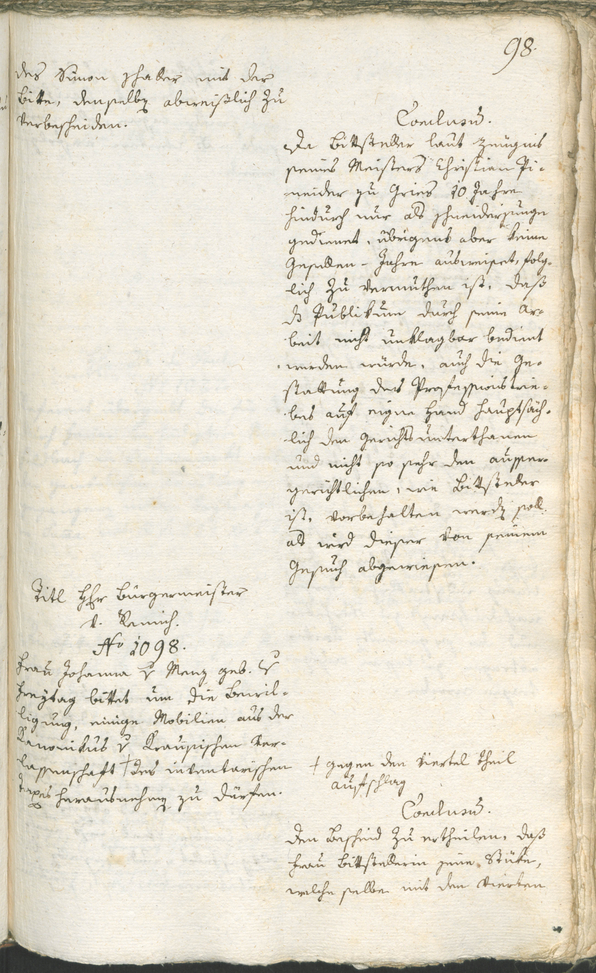 98.
des Simon Thaler mit der
Bitte, denselbē abweißlich zu
verbescheiden.
Conclusũ.
Da Bittsteller laut Zeugnis
seines Meisters Christian Pi-
meider zu Gries 10 Jahre
hindurch nur als Schneiderjunge
gedienet, übrigens aber keine
Gesellen-Jahre ausweiset, folg-
lich zu vermuthen ist, daß
ds Publikum durch seine Ar-
beit nicht unklagbar bedient
werden würde, auch die Ge-
stattung des Professionstrie-
bes auf eigne Hand hauptsäch-
lich den Gerichtsunterthanen
und nicht so sehr den ausser-
gerichtlichen, wie Bittsteller
ist, vorbehalten werdē soll,
als wird dieser von seinem
Gesuch abgewiesen.
Titl Hhr Bürgermeister
v. Remich.
No 1098.
Frau Johanna v Menz geb. v
Freytag bittet um die Bewil-
ligung, einige Mobilien aus der
Kanonikus v Krausischen Ver-
lassenschaft † des inventarischen
herausnehmē zu dürfen.
† gegen den viertel Theil
Aufschlag
Conclusũ.
Den Bescheid zu ertheilen, daß
Frau Bittstellerin jene Stüke,
welche selbe mit den vierten